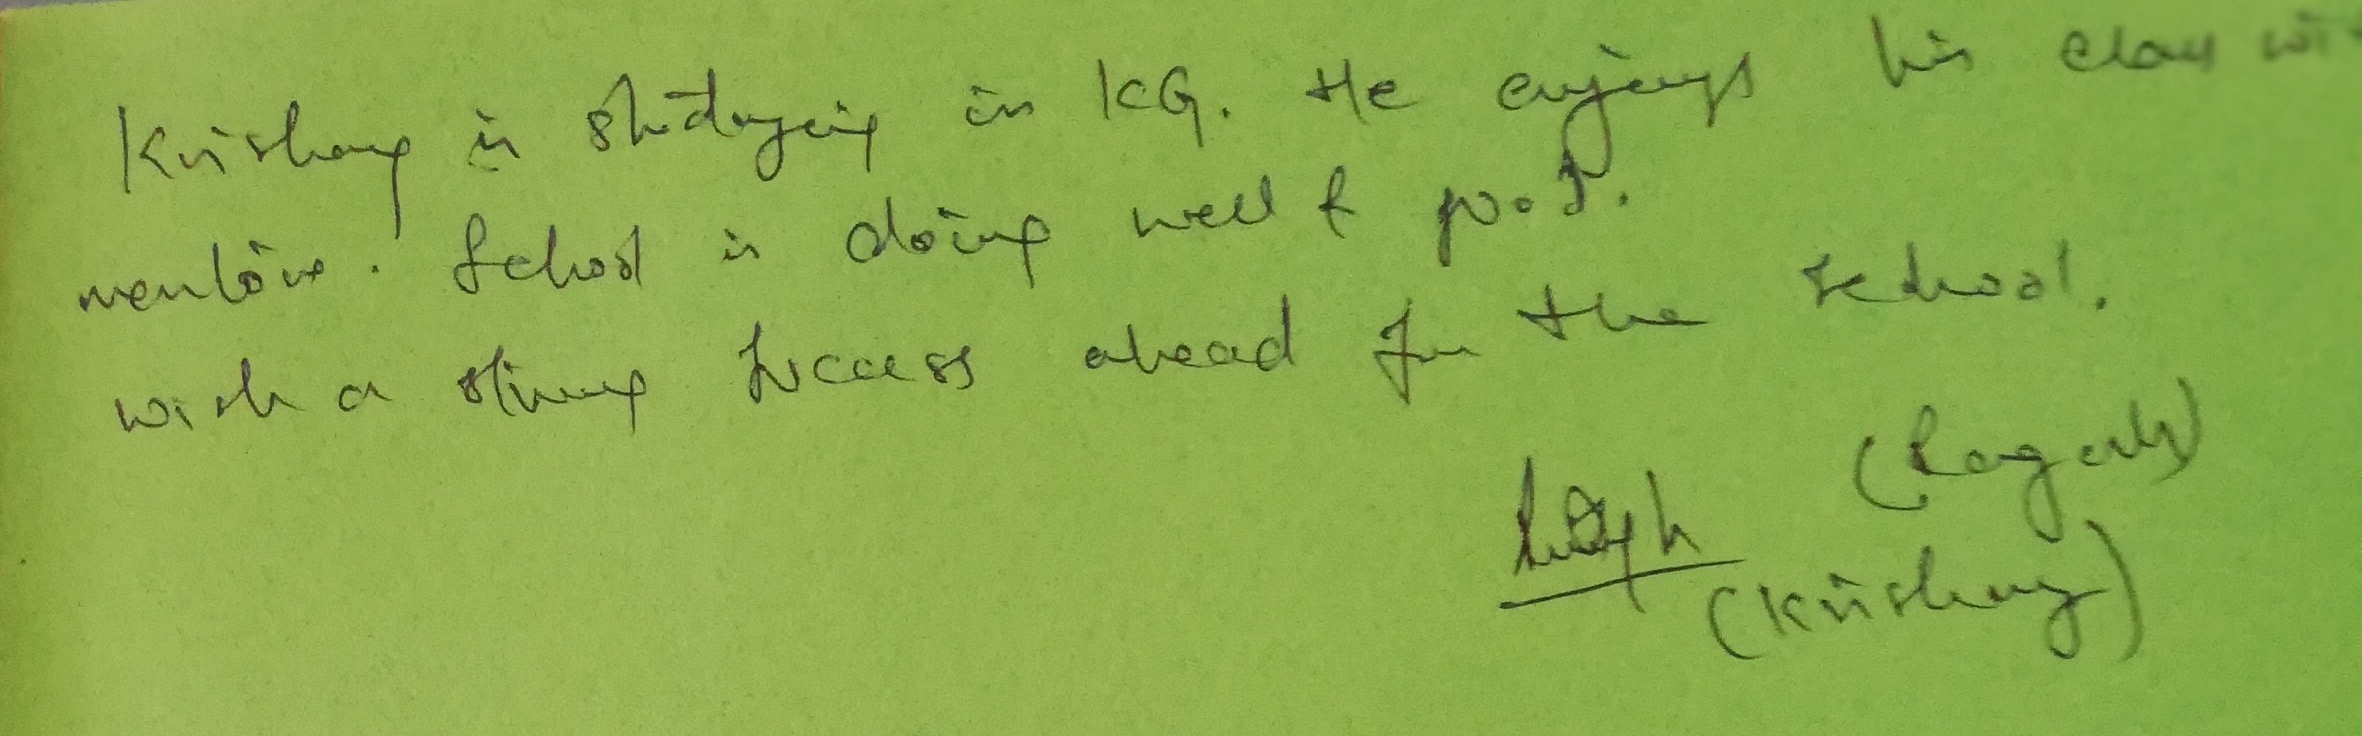 Krishang is studying in KG. He enjoys his class wi
mentors. School is doing well & good.
wish a strong success ahead for the school.
(Krishang)